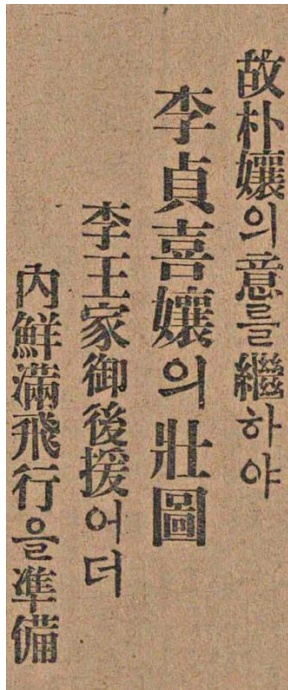 故朴孃의意를繼하야
李貞喜孃의壯圖
李王家御後援어더
內鮮滿飛行을準備